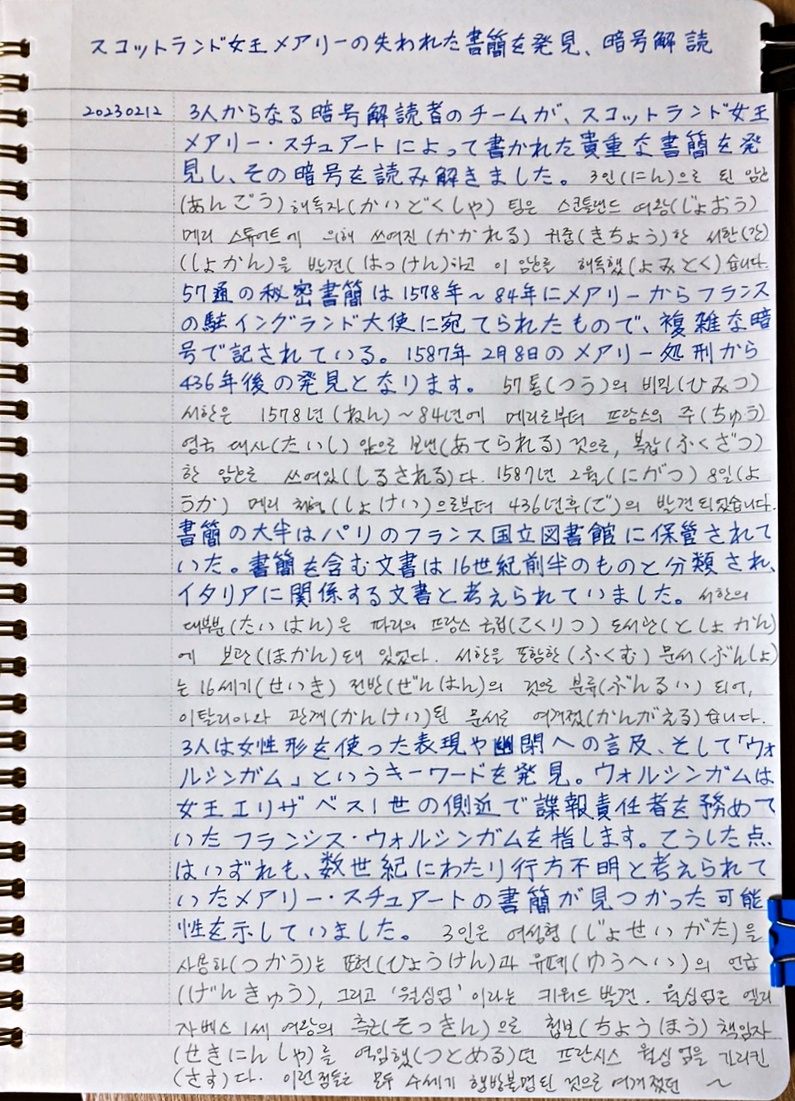 スコットランド女王メアリーの失われた書簡を発見、暗号解読
20230212 3人からなる暗号解読者のチームが、スコットランド女王
メアリー・スチュアートによって書かれた貴重な書簡を発
見し、その暗号を読み解きました。 3인(にん)으로 된 암호
(あんごう) 해독자(かいどくしゃ) 팀은 스코틀랜드 여왕(じょおう)
메리 스튜어트에 의해 쓰여진(かかれる) 귀중(きちょう)한 서한(간)
(しょかん)을 발견(はっけん)하고 이 암호를 해독했(よみとく)습니다.
57通の秘密書簡は1578年～84年にメアリーからフランス
の駐イングランド大使に宛てられたもので、複雑な暗
号で記されている。1587年2月8日のメアリー処刑から
436年後の発見となります。 57통(つう)의 비밀(ひみつ)
서한은 1578년(ねん)~84년에 메리로부터 프랑스의 주(ちゅう)
영국 대사(たいし) 앞으로 보낸(あてられる) 것으로, 복잡(ふくざつ)
한 암호로 쓰여있(しるされる)다. 1587년 2월(にがつ) 8일(よ
うか) 메리 처형(しょけい)으로부터 436년후(ご)의 발견 되었습니다.
書簡の大半はパリのフランス国立図書館に保管されて
いた。書簡を含む文書は16世紀前半のものと分類され、
イタリアに関係する文書と考えられていました。 서한의
대부분(たいはん)은 파리의 프랑스 국립(こくりつ) 도서관(としょかん)
에 보관(ほかん)돼 있었다. 서한을 포함한(ふくむ) 문서(ぶんしょ)
는 16세기(せいき) 전반(ぜんはん)의 것으로 분류(ぶんるい) 되어,
이탈리아와 관계(かんけい)된 문서로 여겨졌(かんがえる)습니다.
3人は女性形を使った表現や幽閉への言及、そして「ウォ
ルシンガム」というキーワードを発見。ウォルシンガムは
女王エリザベス1世の側近で諜報責任者を務めて
いたフランシス・ウォルシンガムを指します。こうした点
はいずれも、数世紀にわたり行方不明と考えられて
いたメアリー・スチュアートの書簡が見つかった可能
性を示していました。 3인은 여성형(じょせいがた)을
사용하(つかう)는 표현(ひょうけん)과 유폐(ゆうへい)의 언급
(げんきゅう), 그리고 '월싱엄' 이라는 키워드 발견. 월싱엄은 엘리
자베스 1세 여왕의 측근(そっきん)으로 첩보(ちょうほう) 책임자
(せきにんしゃ)를 역임했(つとめる)던 프란시스 월싱엄을 가리킨
(さす)다. 이런 점들은 모두 수세기 행방불명된 것으로 여겨졌던 ~